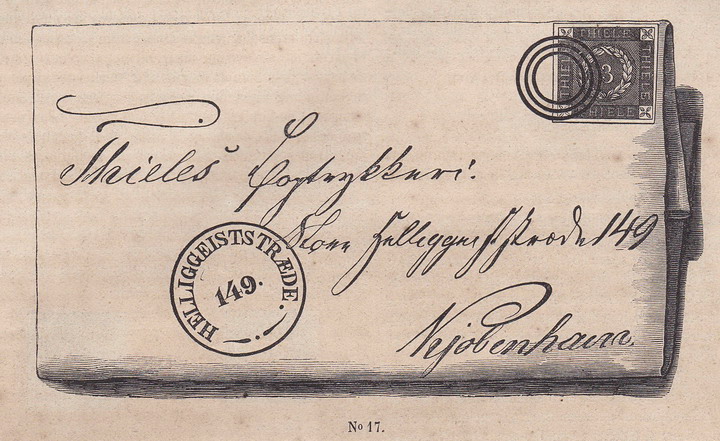 THIELE
THIELE
THIELE
THIELE
3
Thieles Bogtrykkeri.
Store Helliggeiststræde 149
Kjöbenhavn.
HELLIGGEISTSTRÆDE.
149.
No 17.